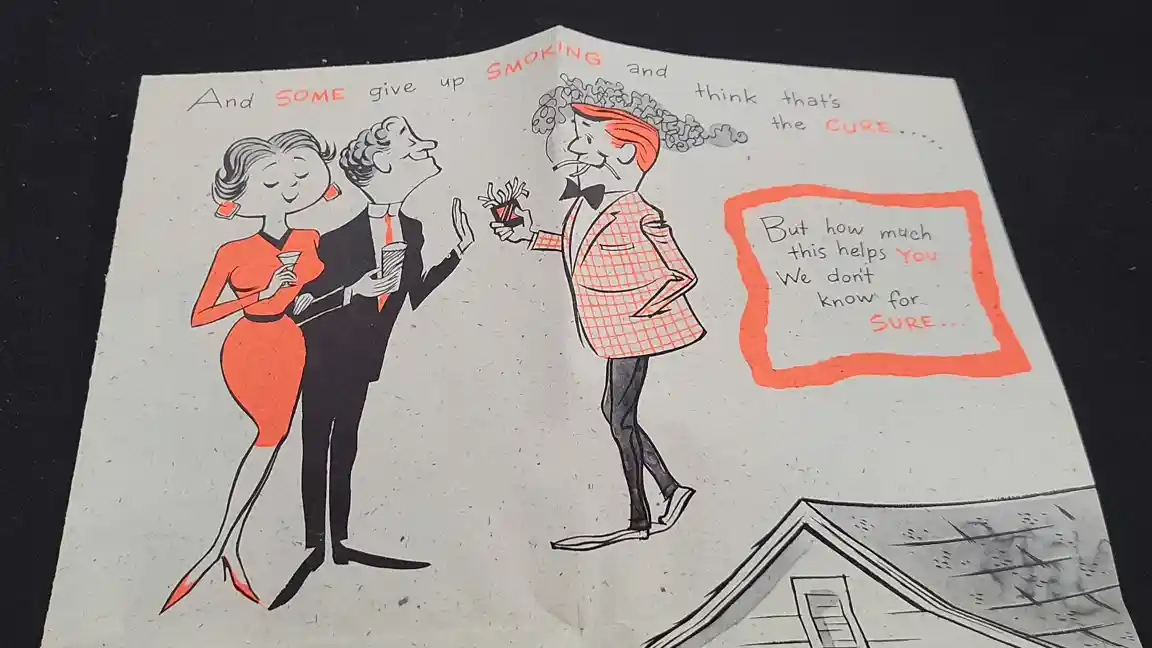 And SOME give up SMOKING and think that's
the CURE.....
But how much
this helps YOU
We don't
know for
SURE...